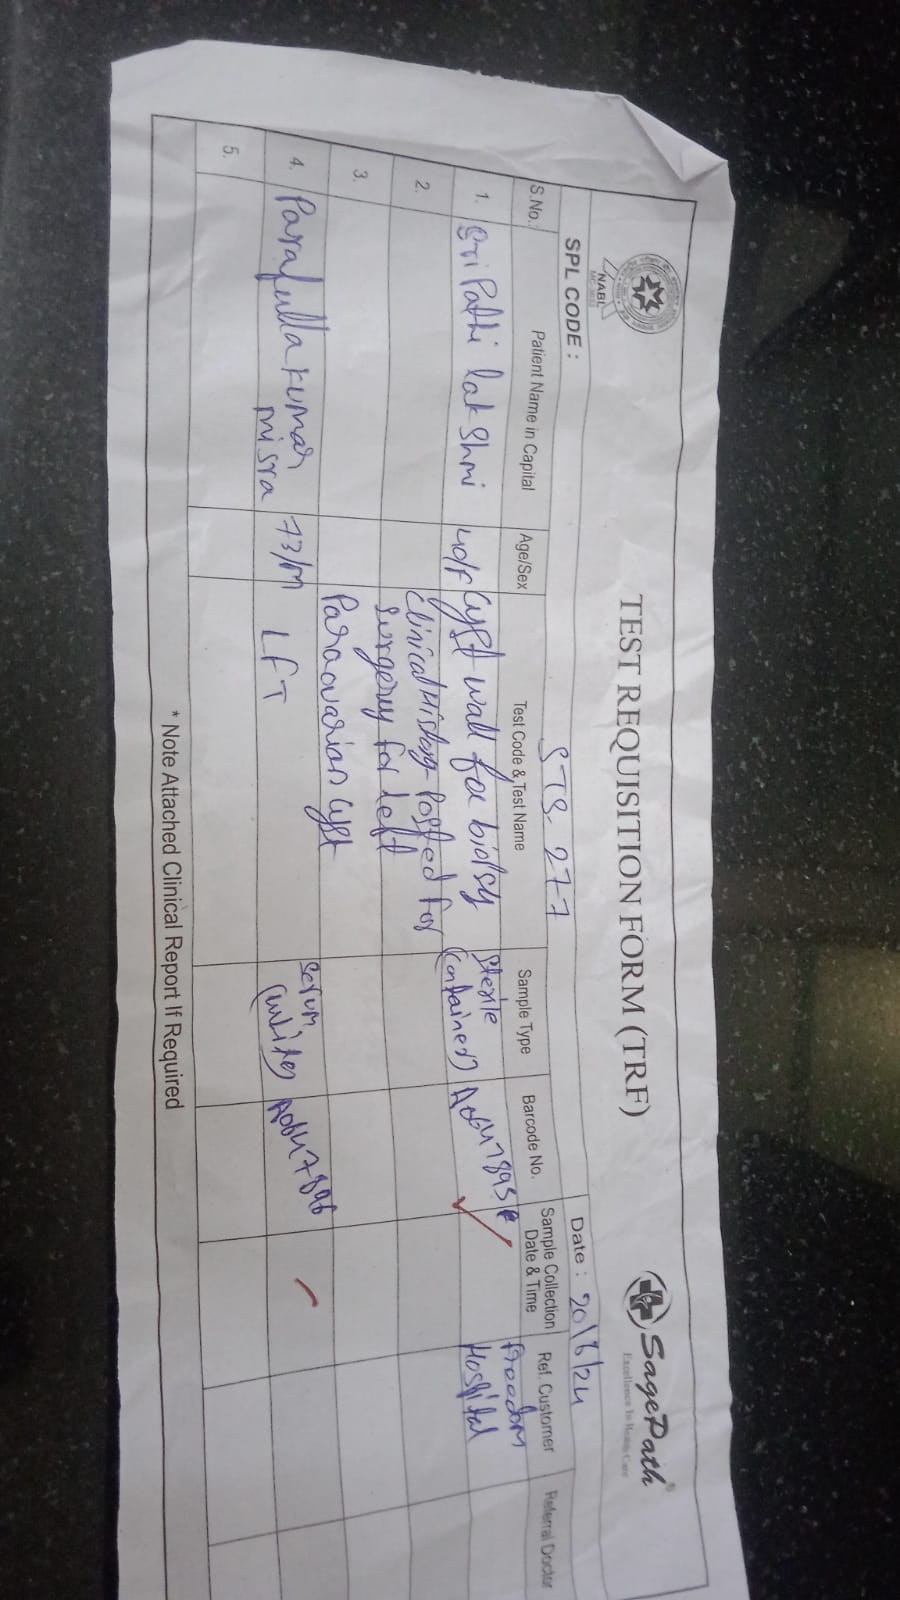 NABL
TEST REQUISITION FORM (TRF)
SagePath®
Excellence In Health Care
SPL CODE :
STS. 277
Date : 20/8/24
S.No.: Patient Name in Capital Age/Sex Test Code & Test Name Sample Type Barcode No. Sample Collection Date & Time Ref. Customer Referral Doctor
1. Sri Pathi lakshmi 40/F Cyst wall for biopsy Sterile (container) A0647895 Freedom Hospital
2. Clinical History- Posted for
surgery for left
3. Paraovarian cyst
4. Parafulla kumar misra 73/M LFT Serum (white) A0647896
5.
* Note Attached Clinical Report If Required